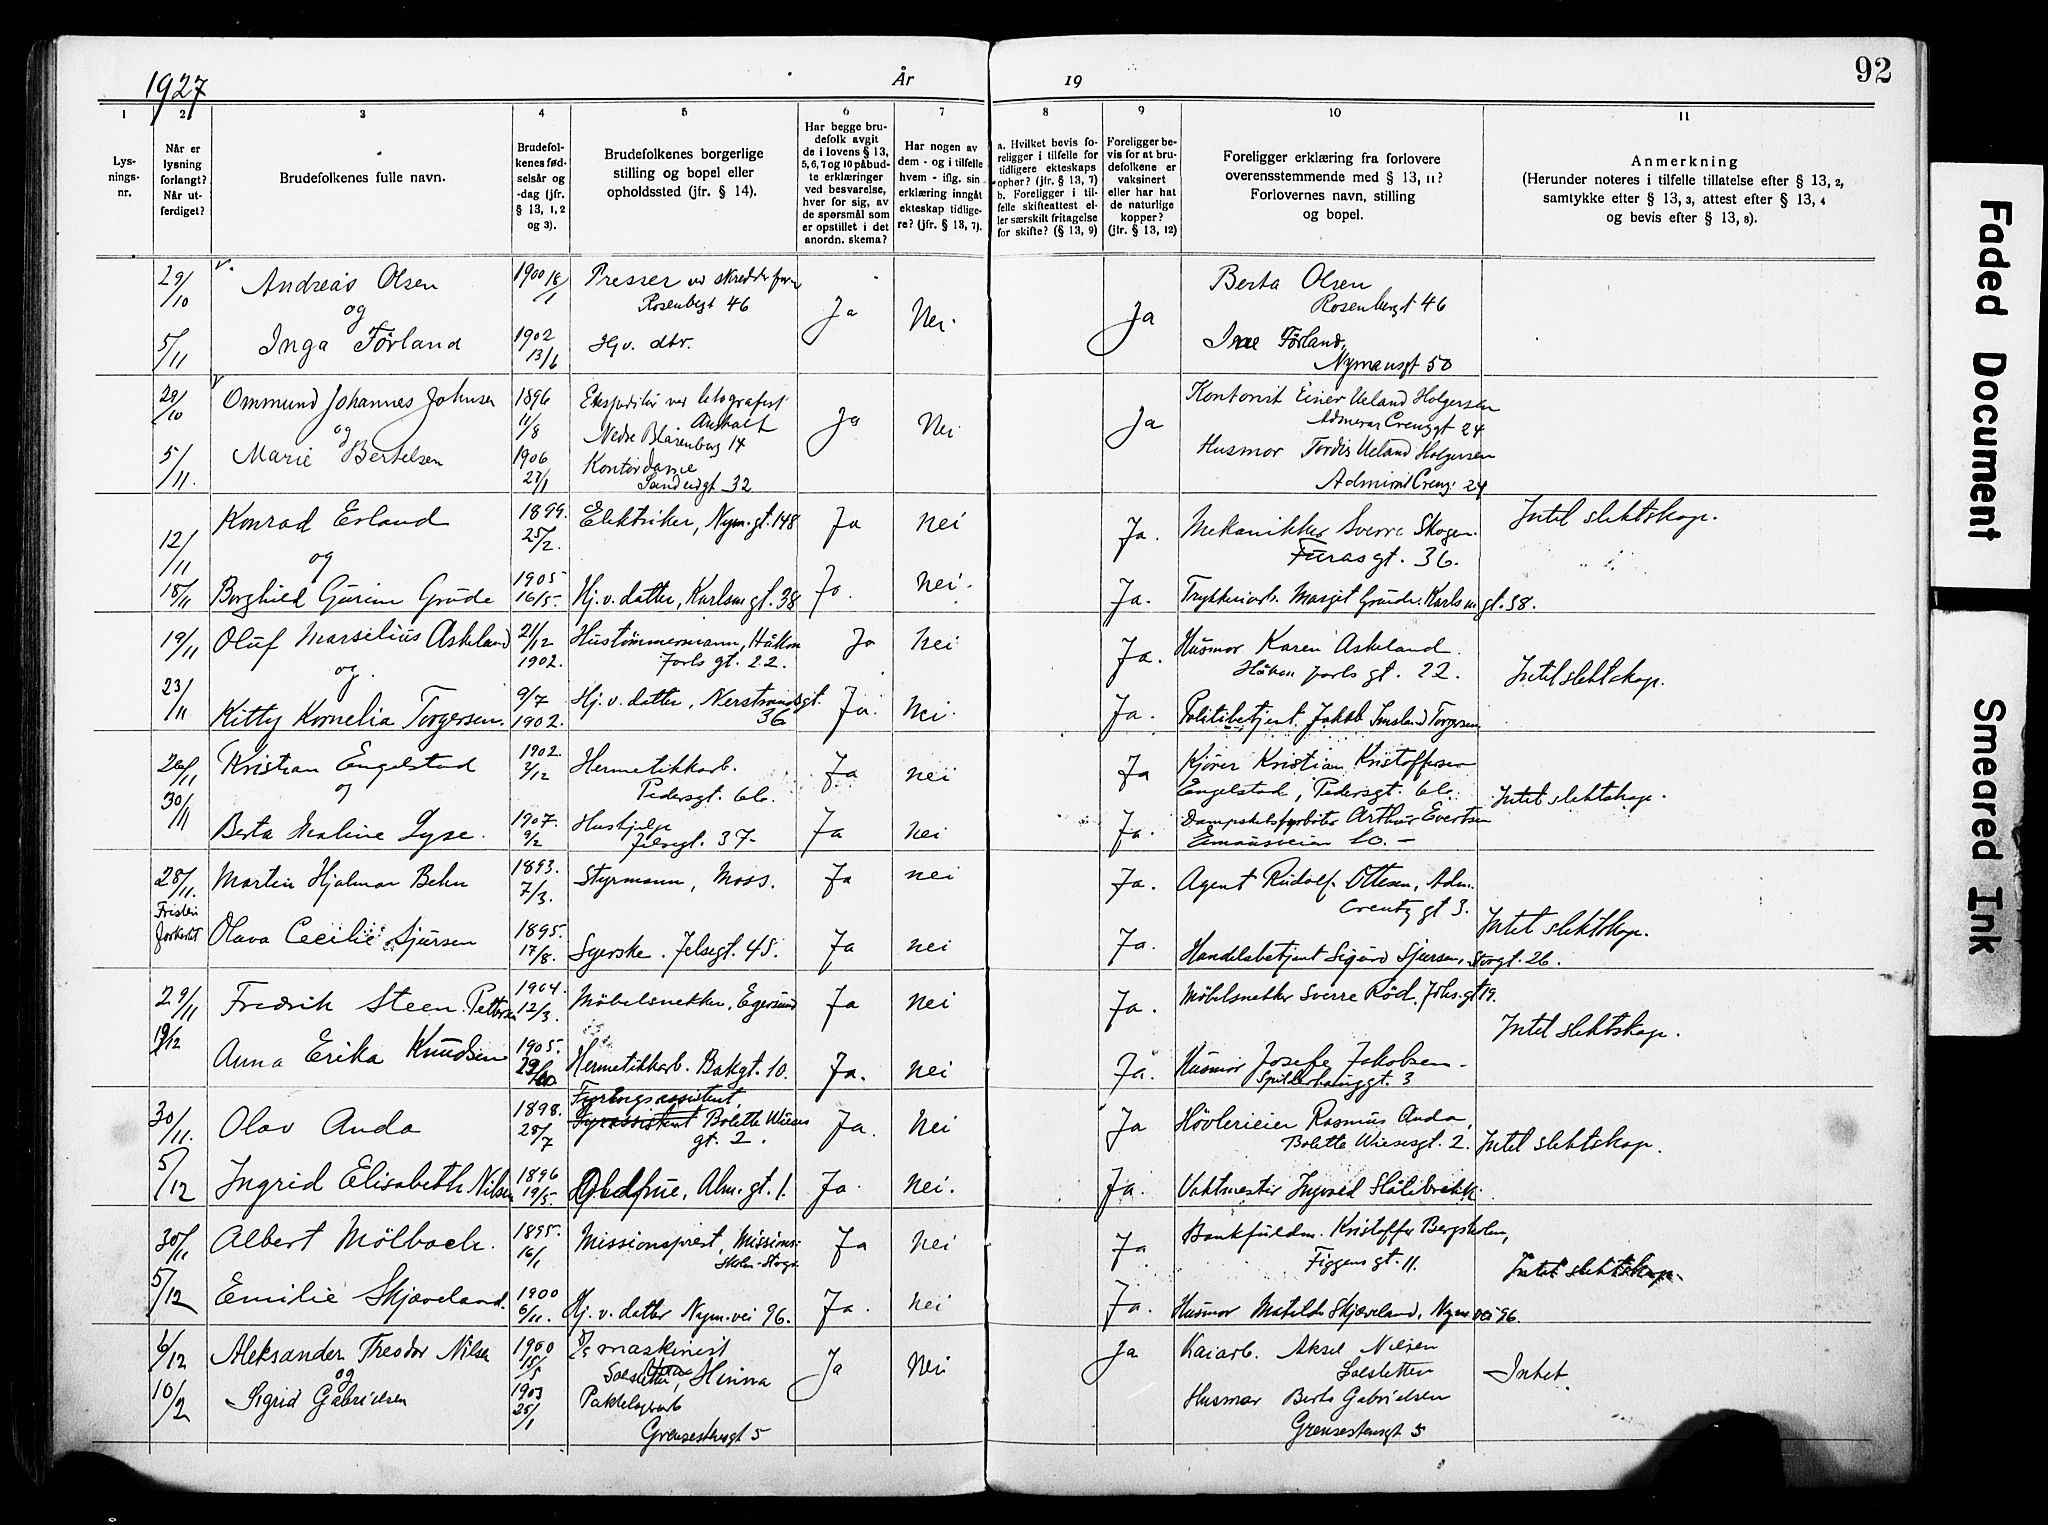 1927 År 19 92
1 2 3 4 5 6 7 8 9 10 11
Lysningsnr.
Når er lysning forlangt? Når utferdiget?
Brudefolkenes fulle navn.
Brudefolkenes fødselsår og -dag (jfr. § 13, 1, 2 og 3).
Brudefolkenes borgerlige stilling og bopel eller opholdssted (jfr. § 14).
Har begge brudefolk avgit de i lovens § 13, 5, 6, 7 og 10 påbudte erklæringer ved besvarelse, hver for sig, av de spørsmål som er opstillet i det anordn. skema?
Har nogen av dem - og i tilfelle hvem - iflg. sin erklæring inngåt ekteskap tidligere? (jfr. § 13, 7).
a. Hvilket bevis foreligger i tilfelle for tidligere ekteskaps ophør? (jfr. § 13, 7) b. Foreligger i tilfelle skifteattest eller særskilt fritagelse for skifte? (§ 13, 9)
Foreligger bevis for at brudefolkene er vaksinert eller har hat de naturlige kopper? (jfr. § 13, 12)
Foreligger erklæring fra forlovere overensstemmende med § 13, 11? Forlovernes navn, stilling og bopel.
Anmerkning (Herunder noteres i tilfelle tillatelse efter § 13, 2, samtykke efter § 13, 3, attest efter § 13, 4 og bevis efter § 13, 8).
29/10 Andreas Olsen 1900 18/1 Presser ved Ja Nei. Ja Berta Olsen
og Rosenbergt 46 Rosenbergt 46
5/11 Inga Förland 1902 13/6 Hj. v. dtr. Förland,
Nymansgt 50
29/10 Ommund Johannes Johnsen 1896 11/8 Ja Nei Ja Kontorist Einer Ueland Holgersen
og Nedre Blåsenborg 14 24
5/11. Marie Bertelsen 1906 27/1 Kontordame Husmor Tordis Ueland Holgersen
32 24
12/11 Konrad Erland 1899. 25/2. Elektriker, Nym. gt. 148 Ja Nei Ja. Mekanikker Sverre Skogen. Intet slektskap.
og Furasgt. 36.
18/11 Borghild Gurine Grude 1905 16/5. Hj. v. datter, Karlsm gt. 38 Ja. Nei. Ja. Trykkeriarb. Margit Grude. Karlsm gt. 38.
19/11 Oluf Marselius Askeland 21/12 1902. Hustømmermann, Håkon Ja Nei Ja. Husmor Karen Askeland.
og. Jarls gt. 22. Håkon Jarls gt. 22. Intet slektskap.
23/11 Kitty Kornelia Torgersen. 9/7 1902. Hj. v. datter, Nerstrandsgt. 36 Ja. Nei. Ja. Politibetjent Jakob Imsland Torgersen
26/11 Kristian Engelstad 1902. 2/12 Hermetikkarb. Ja Nei Ja Kjører Kristian Kristoffersen
og Pedersgt. 66. Engelstad, Pedersgt. 66. Intet slektskap.
30/11 Berta Maline Lyse. 1907. 9/2 Hushjelp Ja Nei Ja. Dampskibsfyrbøter Arthur Evertsen
Jelsegt. 37- Emausveien 10.-
28/11. Martin Hjalmar Behn 1893. 7/3. Styrmann, Moss. Ja Nei Ja. Agent Rudolf Ottesen, Adm.
Fristen Creutz gt 3.
forkortet Olava Cecilie Sjursen 1895. 17/8. Syerske. Jelsegt. 45. Ja Nei Ja. Intet slektskap.
Handelsbetjent Sigurd Sjursen, Storgt. 26.
29/11 Fredrik Steen Pettersen 1904. 12/3. Möbelsnekker, Egersund Ja Nei Ja. Möbelsnekker Sverre Röd, Johs. gt 19.
Intet slektskap.
Anna Erika Knudsen 1905. Hermetikkarb. Bakgt. 10. Ja. Nei Ja. Husmor Josefe Jakobsen-
Spilderhauggt. 3
30/11. Olav Anda 1898. 28/7 Fyrassistent Bolette Wieses gt. 2. Ja. Nei Ja Hövlerieier Rasmus Anda,
Bolette Wiesesgt. 2. Intet slektskap.
5/12 Ingrid Elisabeth Nilsen 1896 19/5. Alm. gt. 1. Ja. Nei. Ja. Vaktmester Ingvald Slåttebrekk.
30/11 Albert Mölbach. 1895. 16/1 Missionsprest, Missions-skolen-Stvgr. Ja Nei Ja Bankfuldm. Kristoffer Bergsholm,
Figgens gt. 11. Intet slektskap.
5/12 Emilie Skjæveland. 1900 6/11. Hj. v. datter Nym. vei 96. Ja. Nei Ja. Husmor Matilde Skjæveland, Nym. vei 96.
6/12 Aleksander Theodor Nilsen 1900 15/5 maskinist Ja Nei Ja Kaiarb. Aksel Nilsen
og Solsletten, Hinna Solsletten Intet.
10/2 Sigrid Gabrielsen 1903 25/1 Husmor Berta Gabrielsen
Grensestensgt 5 Grensestensgt 5
Faded Document
Smeared Ink